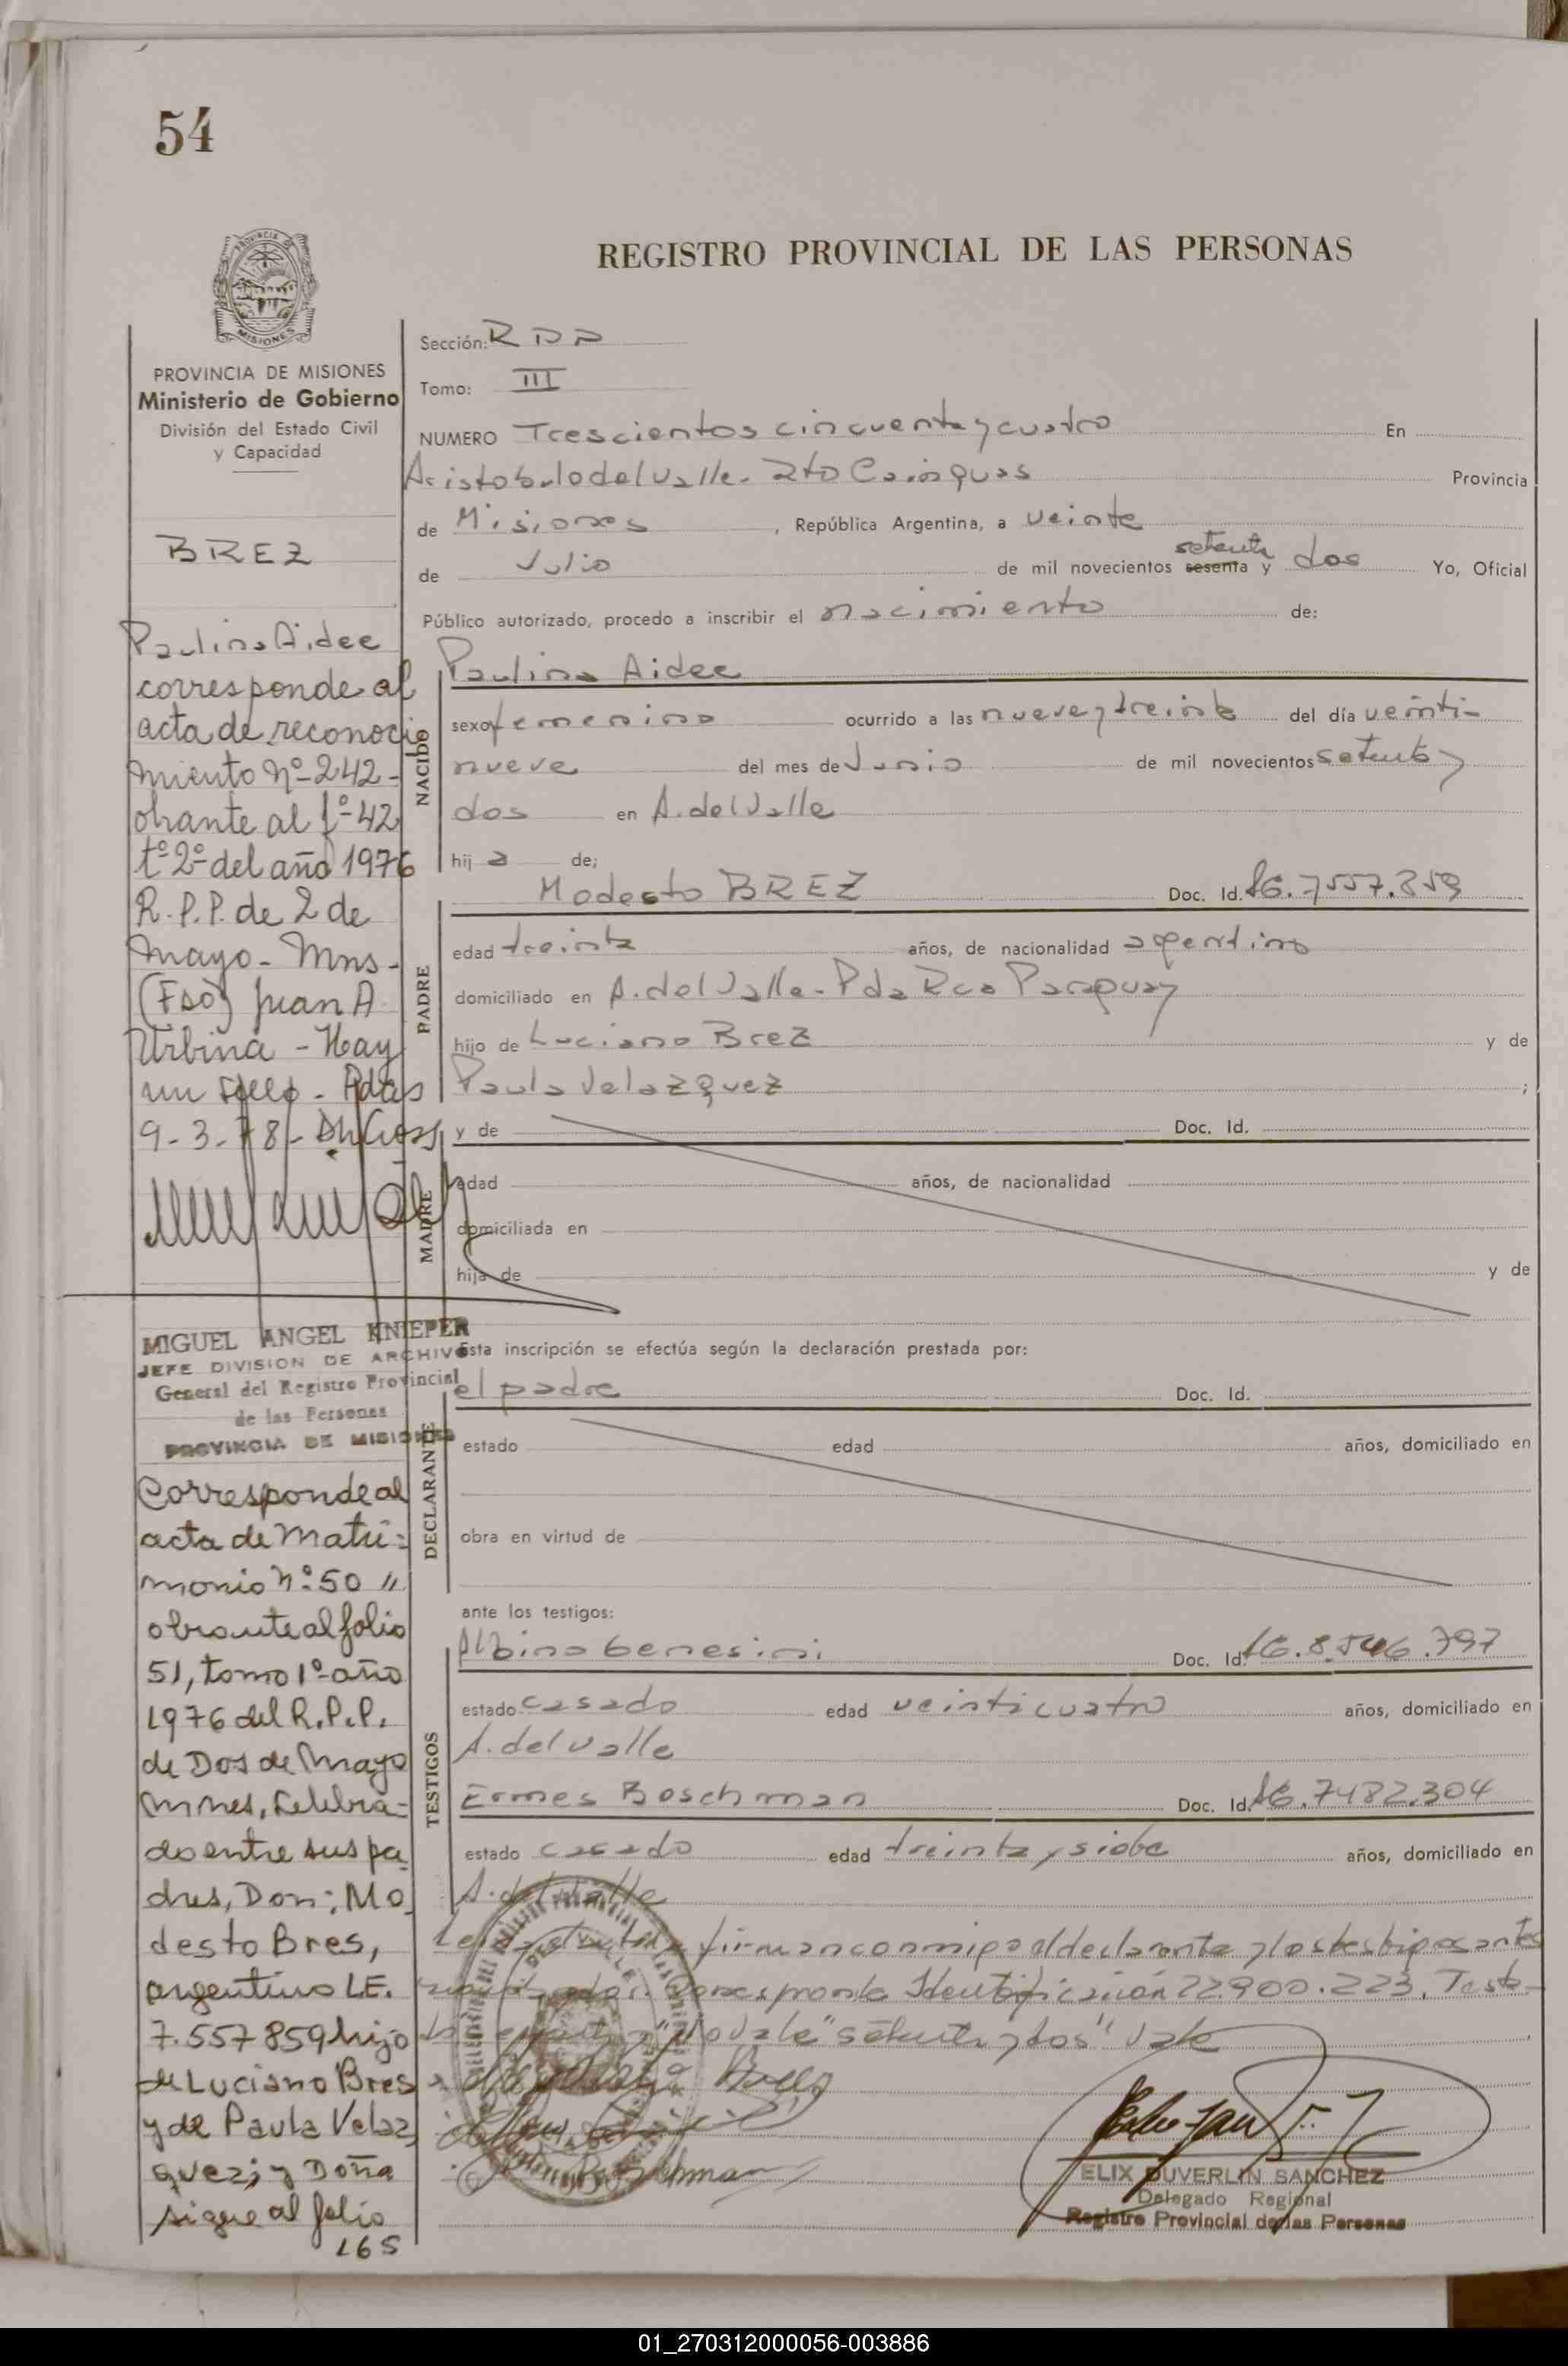 54
REGISTRO PROVINCIAL DE LAS PERSONAS
MISIONES
PROVINCIA DE MISIONES
Ministerio de Gobierno
División del Estado Civil
y Capacidad
BREZ
Paulina Aidee
corresponde al
acta de reconoci
miento nº 242-
obrante al fº 42
tº 2º del año 1976
R.P.P. de 2 de
Mayo - Mns -
(Fdo) Juan A
Urbina - Hay
un sello - Pdas
9-3-78-
MIGUEL ANGEL KNIEPER
JEFE DIVISION DE ARCHIVO
General del Registro Provincial
de las Personas
PROVINCIA DE MISIONES
Corresponde al
acta de Matri=
monio nº 50 "
obrante al folio
51, tomo 1º año
1976 del R.P.P.
de Dos de Mayo
Mnes, Celebra=
do entre sus pa
dres, Don: Mo
desto Bres,
argentino L.E.
7.557859 hijo
de Luciano Bres
y de Paula Velaz
quez; y Doña
sigue al folio
165
Sección: RDP
Tomo: III
NUMERO Trescientos cincuenta y cuatro En
Aristobulo del Valle. Dto Cainguas Provincia
de Misiones, República Argentina, a veinte
de Julio de mil novecientos sesenta setenta y dos Yo, Oficial
Público autorizado, procedo a inscribir el nacimiento de:
NACIDO
Paulina Aidee
sexo femenino ocurrido a las nueve y treinta del día veinti-
nueve del mes de Junio de mil novecientos setenta y
dos en A. del Valle
hij a de;
PADRE
Modesto BREZ Doc. Id. 7557.859
edad treinta años, de nacionalidad argentino
domiciliado en A. del Valle - Pda Rca Paraguay
hijo de Luciano Brez y de
Paula Velazquez ;
MADRE
y de Doc. Id.
edad años, de nacionalidad
domiciliada en
hija de y de
Esta inscripción se efectúa según la declaración prestada por:
DECLARANTE
el padre Doc. Id.
estado edad años, domiciliado en
obra en virtud de
ante los testigos:
TESTIGOS
Albino Genesini Doc. Id. 8.546.797
estado casado edad veinticuatro años, domiciliado en
A. del Valle
Ermes Boschman Doc. Id. 7482.304
estado casado edad treinta y siete años, domiciliado en
A. del Valle
Leida el acta firman conmigo el declarante y los testigos antes
Corresponde Identificación 22.900.223. Testa-
do no vale "setenta y dos" vale
ELIX DUVERLIN SANCHEZ
Delegado Regional
Registro Provincial de las Personas
01_270312000056-003886